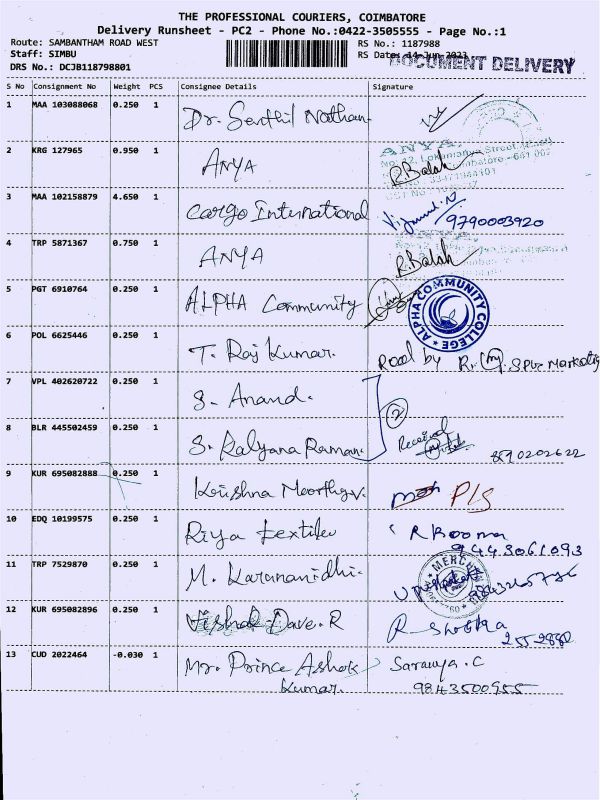 THE PROFESSIONAL COURIERS, COIMBATORE
Delivery Runsheet - PC2 - Phone No.:0422-3505555 - Page No.:1
Route: SAMBANTHAM ROAD WEST RS No.: 1187988
Staff: SIMBU RS Date: 14-Jun-2023
DOCUMENT DELIVERY
DRS No.: DCJB118798801
S No Consignment No Weight PCS Consignee Details Signature
1 MAA 103088068 0.250 1 Dr. Senthil Nathan
2 KRG 127965 0.950 1 ANYA R.Balah
3 MAA 102158879 4.650 1 Cargo International 9790003920
4 TRP 5871367 0.750 1 ANYA R.Balah
5 PGT 6910764 0.250 1 ALPHA Community
ALPHA COMMUNITY COLLEGE
6 POL 6625446 0.250 1 T. Raj Kumar. by
7 VPL 402620722 0.250 1 S. Anand.
2
8 BLR 445502459 0.250 1 S. Kalyana Raman. Received
9 KUR 695082888 0.250 1 Krishna Moorthy.v.
10 EDQ 10199575 0.250 1 Riya textiles R Booma
9443061093
11 TRP 7529870 0.250 1 M. Karunanidhi.
12 KUR 695082896 0.250 1 Vishal Dave. R
2552880
13 CUD 2022464 -0.030 1 Mr. Prince Ashok Saranya. C
Kumar. 9843500955